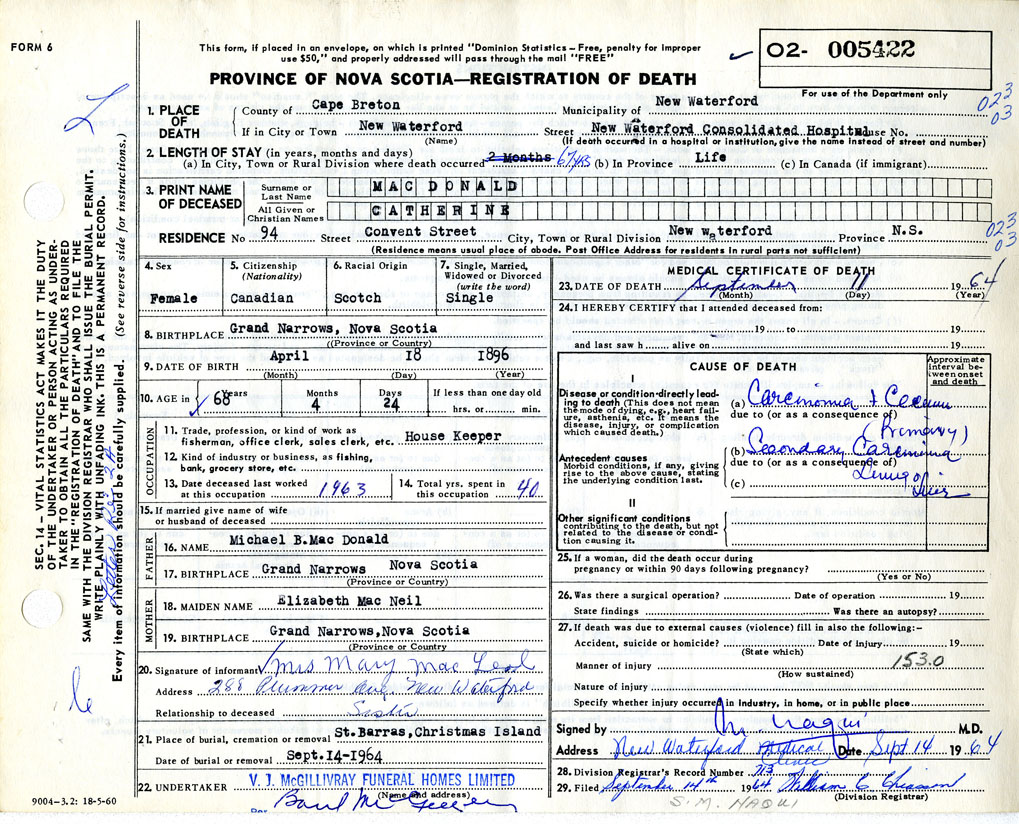 FORM 6
This form, if placed in an envelope, on which is printed "Dominion Statistics – Free, penalty for improper
use $50," and properly addressed will pass through the mail "FREE"
02- 005422
For use of the Department only
PROVINCE OF NOVA SCOTIA—REGISTRATION OF DEATH
023
03
1. PLACE OF DEATH
County of Cape Breton Municipality of New Waterford
If in City or Town New Waterford Street New Waterford Consolidated Hospital House No.
(Name) (If death occurred in a hospital or institution, give the name instead of street and number)
2. LENGTH OF STAY (in years, months and days)
(a) In City, Town or Rural Division where death occurred 2 Months 67 yrs (b) In Province Life (c) In Canada (if immigrant)
3. PRINT NAME OF DECEASED
Surname or Last Name MAC DONALD
All Given or Christian Names CATHERINE
RESIDENCE No 94 Street Convent Street City, Town or Rural Division New Waterford Province N.S.
023
03
(Residence means usual place of abode. Post Office Address for residents in rural parts not sufficient)
4. Sex
Female
5. Citizenship
(Nationality)
Canadian
6. Racial Origin
Scotch
7. Single, Married, Widowed or Divorced
(write the word)
Single
8. BIRTHPLACE Grand Narrows, Nova Scotia
(Province or Country)
9. DATE OF BIRTH April 18 1896
(Month) (Day) (Year)
10. AGE in Years Months Days If less than one day old
68 4 24 hrs. or min.
OCCUPATION
11. Trade, profession, or kind of work as
fisherman, office clerk, sales clerk, etc. House Keeper
12. Kind of industry or business, as fishing,
bank, grocery store, etc.
13. Date deceased last worked
at this occupation 1963
14. Total yrs. spent in
this occupation 40
15. If married give name of wife
or husband of deceased
FATHER
16. NAME Michael B.Mac Donald
17. BIRTHPLACE Grand Narrows Nova Scotia
(Province or Country)
MOTHER
18. MAIDEN NAME Elizabeth Mac Neil
19. BIRTHPLACE Grand Narrows,Nova Scotia
(Province or Country)
20. Signature of informant Mrs Mary Mac Leod
Address 288 Plummer Ave, New Waterford
Relationship to deceased Sister
21. Place of burial, cremation or removal St.Barras,Christmas Island
Date of burial or removal Sept.14-1964
22. UNDERTAKER V. J. McGILLIVRAY FUNERAL HOMES LIMITED
(Name and address)
Per
9004-3.2: 18-5-60
MEDICAL CERTIFICATE OF DEATH
23. DATE OF DEATH September 11 1964
(Month) (Day) (Year)
24. I HEREBY CERTIFY that I attended deceased from:
19 to 19
and last saw h alive on 19
CAUSE OF DEATH
Approximate interval between onset and death
I
Disease or condition directly leading to death (This does not mean the mode of dying, e.g., heart failure, asthenia, etc. It means the disease, injury, or complication which caused death.)
(a) Carcinoma of Cecum
due to (or as a consequence of)
(Primary)
Antecedent causes
Morbid conditions, if any, giving rise to the above cause, stating the underlying condition last.
(b) Secondary Carcinoma
due to (or as a consequence of)
(c)
II
Other significant conditions
contributing to the death, but not related to the disease or condition causing it.
25. If a woman, did the death occur during
pregnancy or within 90 days following pregnancy?
(Yes or No)
26. Was there a surgical operation? Date of operation 19
State findings Was there an autopsy?
27. If death was due to external causes (violence) fill in also the following:-
Accident, suicide or homicide? Date of injury 19
(State which)
Manner of injury 153.0
(How sustained)
Nature of injury
Specify whether injury occurred in industry, in home, or in public place
Signed by M. Naqui M.D.
Address New Waterford Medical Clinic Date Sept 14 1964
28. Division Registrar's Record Number 713
29. Filed September 14th 1964 William C Chiasson
(Division Registrar)
S. M. NAQUI
SEC. 14 – VITAL STATISTICS ACT MAKES IT THE DUTY
OF THE UNDERTAKER OR PERSON ACTING AS UNDER-
TAKER TO OBTAIN ALL THE PARTICULARS REQUIRED
IN THE "REGISTRATION OF DEATH" AND TO FILE THE
SAME WITH THE DIVISION REGISTRAR WHO SHALL ISSUE THE BURIAL PERMIT.
WRITE PLAINLY WITH UNFADING INK. THIS IS A PERMANENT RECORD.
Every item of information should be carefully supplied. (See reverse side for instructions.)